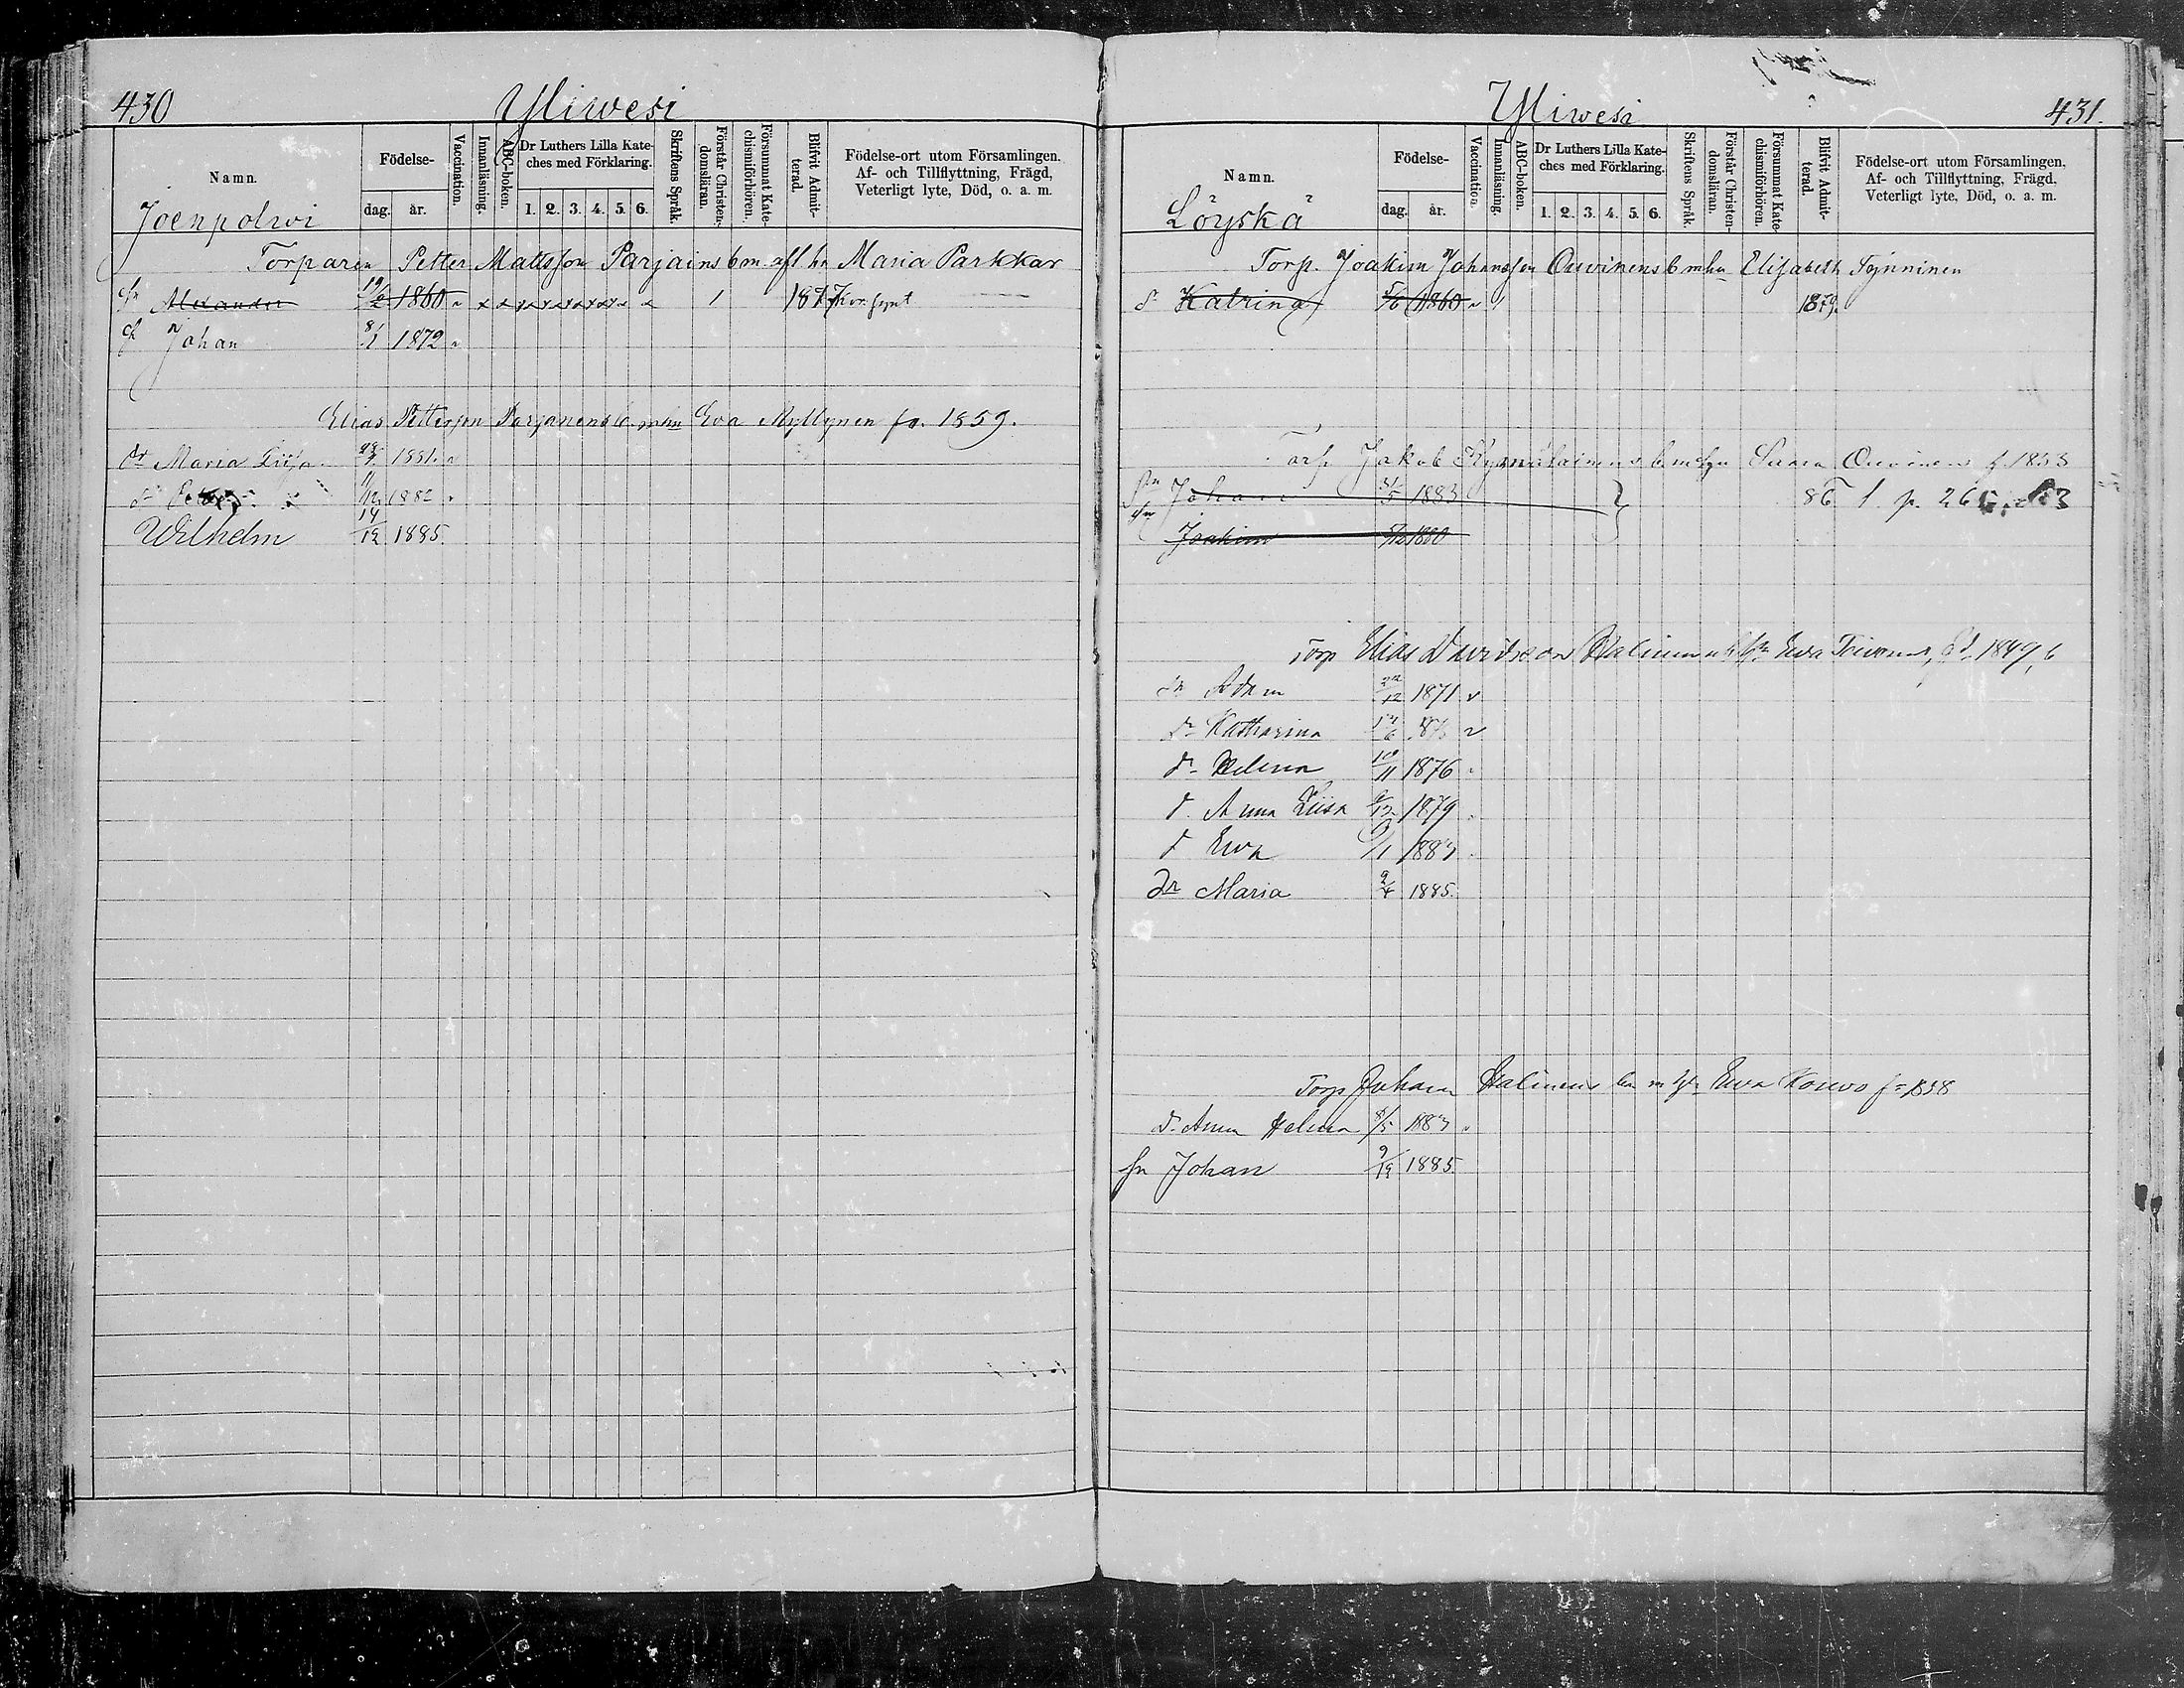 430 Yliwesi
Namn. Födelse- dag. år. Vaccination. Innanläsning. ABC-boken. Dr Luthers Lilla Kate-ches med Förklaring. 1. 2. 3. 4. 5. 6. Skriftens Språk. Förstår Christen-domsläran. Försummat Kate-chismiförhören. Blifvit Admit-terad. Födelse-ort utom Församlingen. Af- och Tillflyttning, Frägd, Veterligt lyte, Död, o. a. m.
Joenpolwi
Torparen Petter Mattsson Parjains b m afl hu Maria Parkkar
sn Alexander 1860 x x x x x x x x x 1 1877
Johan 8/1 1872
Elias Pettersson Parjanens b. m hu Eva Myllynen fo. 1859.
dr Maria Liisa 1881
Petter 1/12 1882
Wilhelm 14/12 1885.
Yliwesi 431.
Namn. Födelse- dag. år. Vaccination. Innanläsning. ABC-boken. Dr Luthers Lilla Kate-ches med Förklaring. 1. 2. 3. 4. 5. 6. Skriftens Språk. Förstår Christen-domsläran. Försummat Kate-chismiförhören. Blifvit Admit-terad. Födelse-ort utom Församlingen, Af- och Tillflyttning, Frägd, Veterligt lyte, Död, o. a. m.
Löyskä
Torp. Joakim Johansson Ouvinens b m hu Elisabeth Tynninen
d Katrina 5/6 1860 1 1879.
Torp Jakob b m Sanna Ouvinen f. 1853
sn Johan 31/5 1883 86 p.
sn Joakim 1880
Torp Elias Davidsson Halinens Ewa 1849,
sn Adam 22/12 1871
d- Katharina
d- Helena 10/11 1876
d. Anna Liisa 1879
d Ewa 1883
dr Maria 9/4 1885.
Torp Johan Halinens b m Ewa Kouvo f= 1858
d. Anna Helena 8/5 1883
sn Johan 9/12 1885